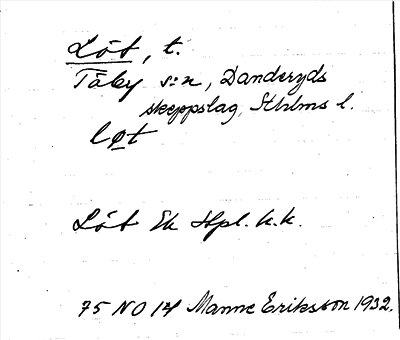 Löt, t.
Täby s:n, Danderyds
skeppslag, Sthlms l.
løt
Löt Ek Hpl. k.k.
75 NO 14 Manne Eriksson 1932.